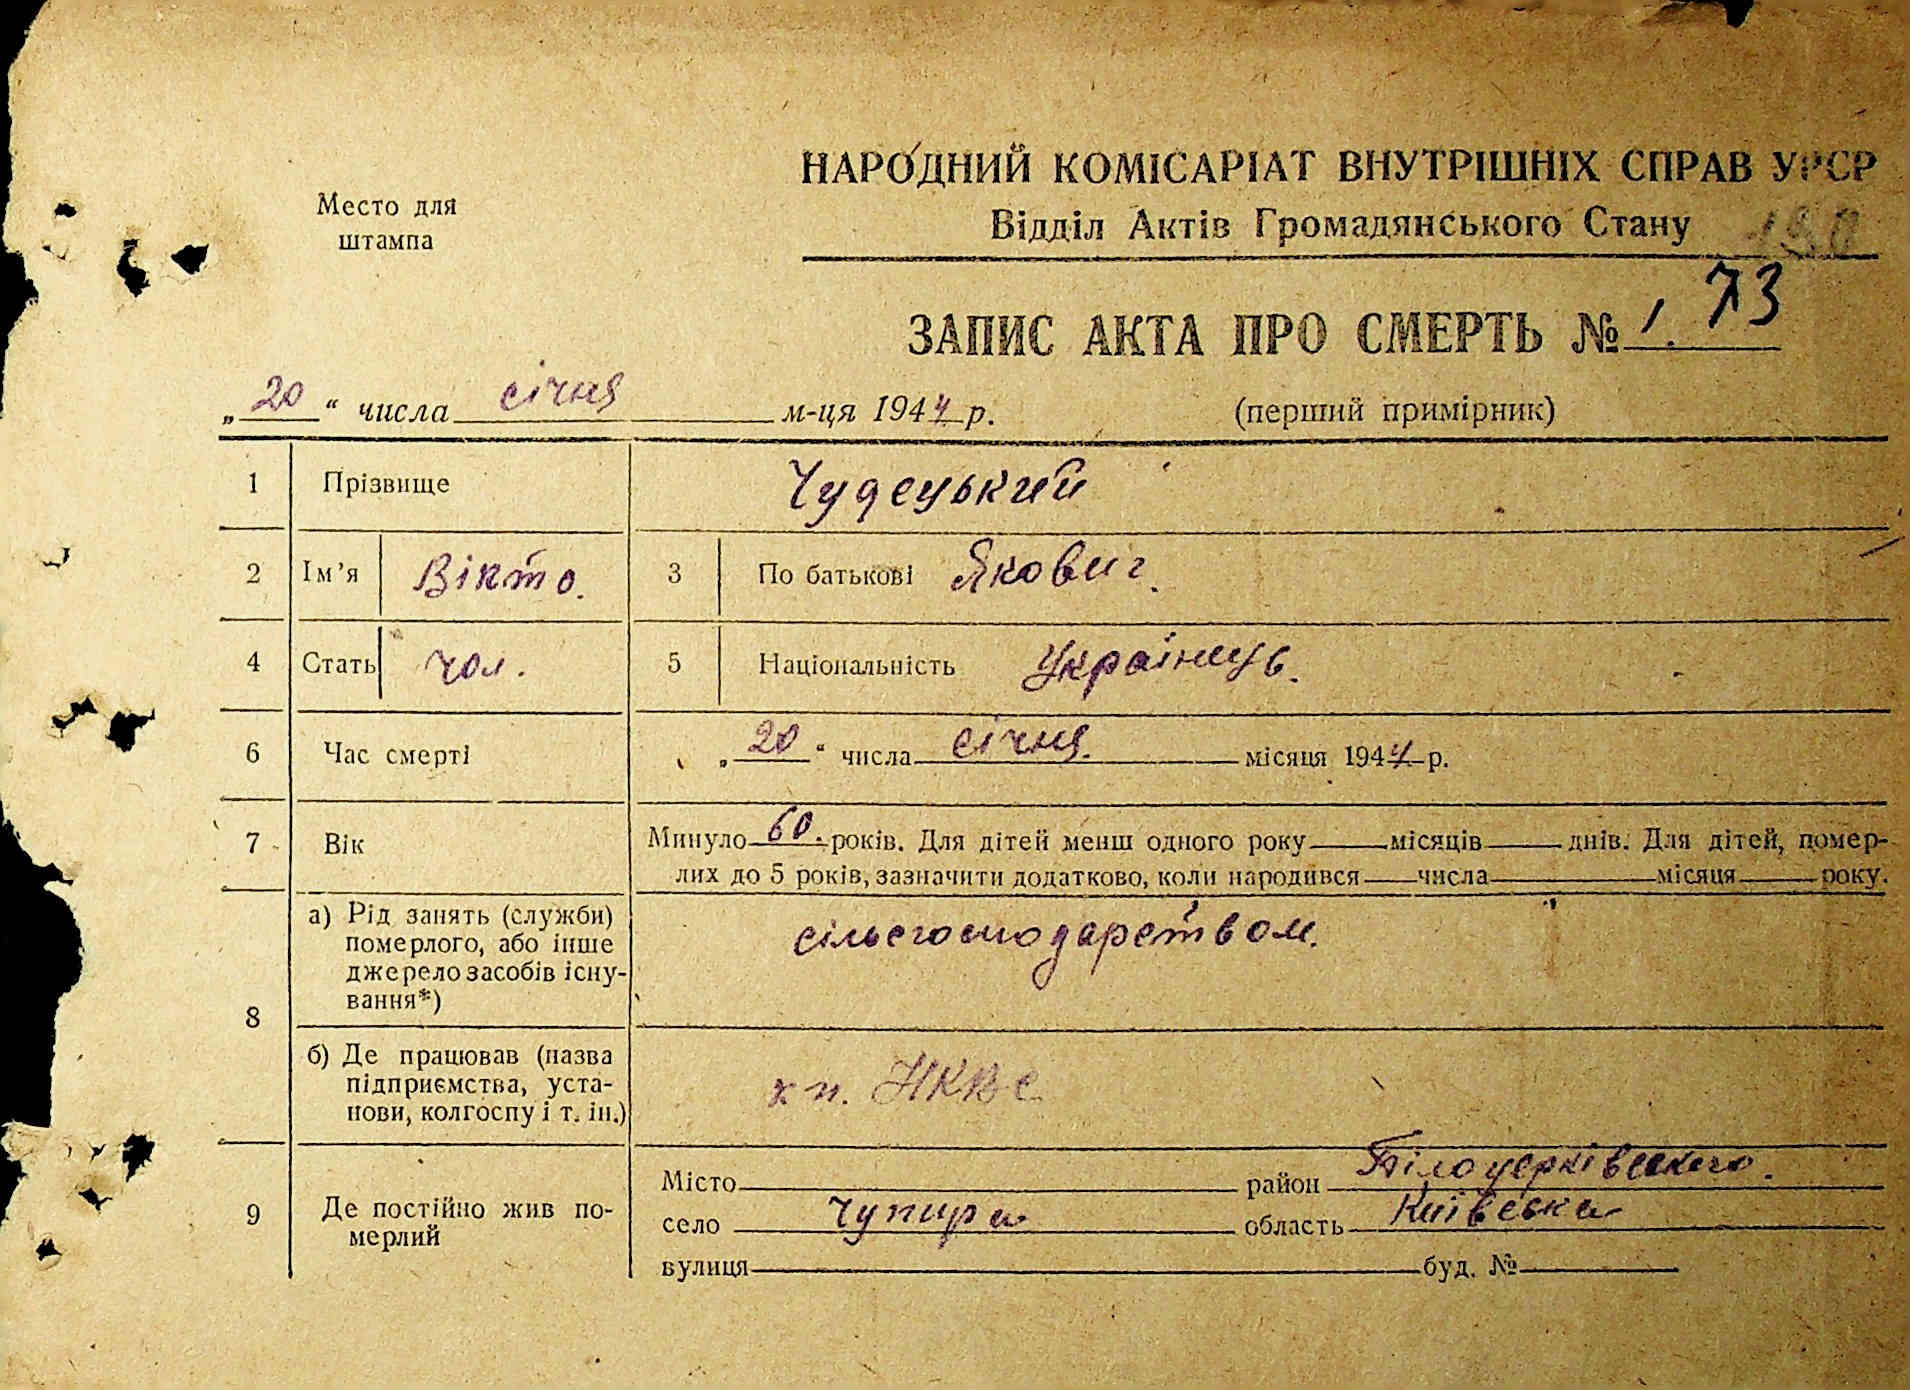 Место для
штампа
НАРОДНИЙ КОМІСАРІАТ ВНУТРІШНІХ СПРАВ УРСР
Відділ Актів Громадянського Стану
ЗАПИС АКТА ПРО СМЕРТЬ № 1. 73
„20“ числа січня м-ця 1944 р.
(перший примірник)
1 Прізвище Чудецький
2 Ім’я Вікто. 3 По батькові Якович.
4 Стать чол. 5 Національність Українець.
6 Час смерті „20“ числа січня. місяця 1944 р.
7 Вік Минуло 60. років. Для дітей менш одного року місяців днів. Для дітей, помер-
лих до 5 років, зазначити додатково, коли народився числа місяця року.
8 а) Рід занять (служби)
померлого, або інше
джерело засобів існу-
вання*)
сільсгосподарством.
б) Де працював (назва
підприємства, уста-
нови, колгоспу і т. ін.)
9 Де постійно жив по-
мерлий
Місто район Білоцерківського.
село Чупира область Київська
вулиця буд. №